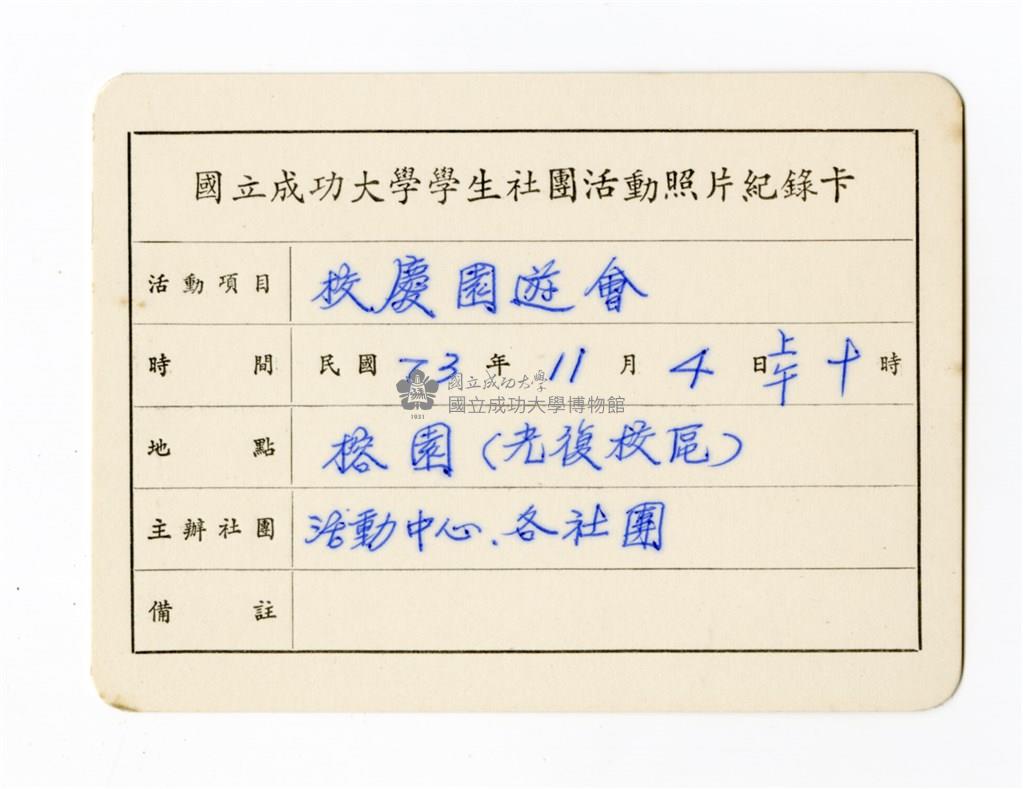 國立成功大學學生社團活動照片紀錄卡
活動項目 校慶園遊會
時間 民國 73 年 11 月 4 日 上午 十 時
國立成功大學
國立成功大學博物館
1931
地點 榕園（光復校區）
主辦社團 活動中心、各社團
備註